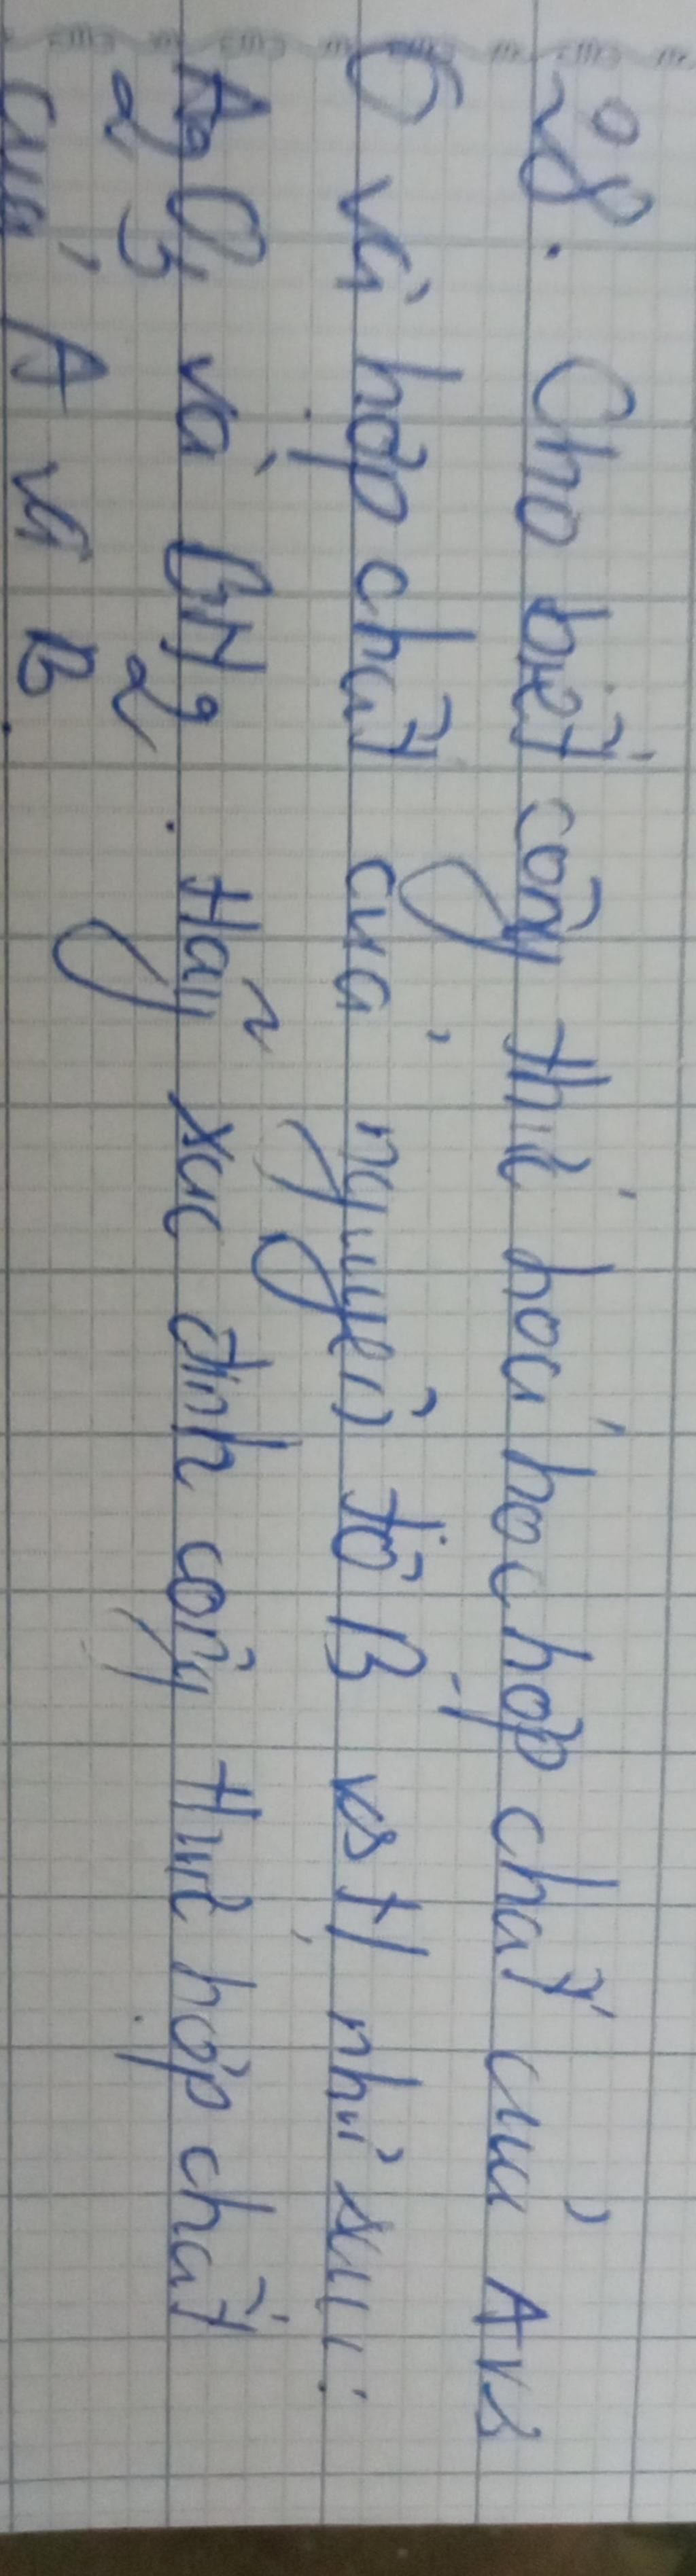 28. Cho biết công thức hoá học hợp chất của A vs
O và hợp chất của nguyên tố B vs H như sau:
A₂O₃ và BH₂. Hãy xác định công thức hợp chất
của A và B.